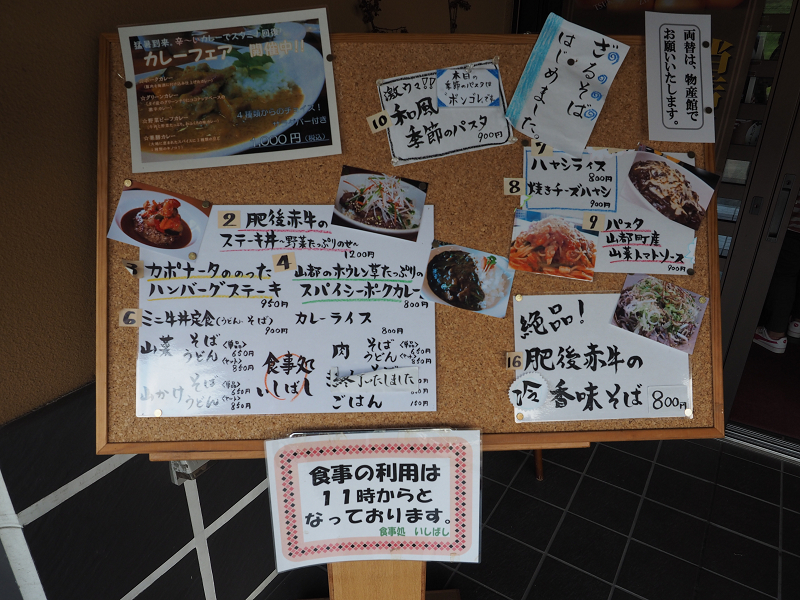 猛暑到来。辛～いカレーでスタミナ回復!
カレーフェア 開催中!!
☆グリーンカレー
☆野菜ビーフカレー
4種類からのチョイス!
1000円(税込)
激ウマ
10 和風
季節のパスタ
900円
本日の
季節のパスタは
ボンゴレです
ざるそば
はじめました
両替は、物産館で
お願いいたします。
2 肥後赤牛の
ステーキ丼～野菜たっぷりのせ～
1200円
カポナータののった
ハンバーグステーキ
950円
4 山都のホウレン草たっぷりの
スパイシーポークカレー
800円
6 ミニ牛丼定食(うどんorそば)
900円
カレーライス
800円
山菜 そば うどん
<単品> 650円
<セット> 850円
肉 そば うどん
<単品> 650円
<セット> 850円
山かけ そば うどん
<単品> 650円
<セット> 850円
食事処
いしばし
終了いたしました
ごはん
150円
ハヤシライス
800円
8 焼きチーズハヤシ
900円
9 パスタ
山都町産
山菜トマトソース
900円
絶品!
16 肥後赤牛の
冷 香味そば
800円
食事の利用は
11時からと
なっております。
食事処 いしばし